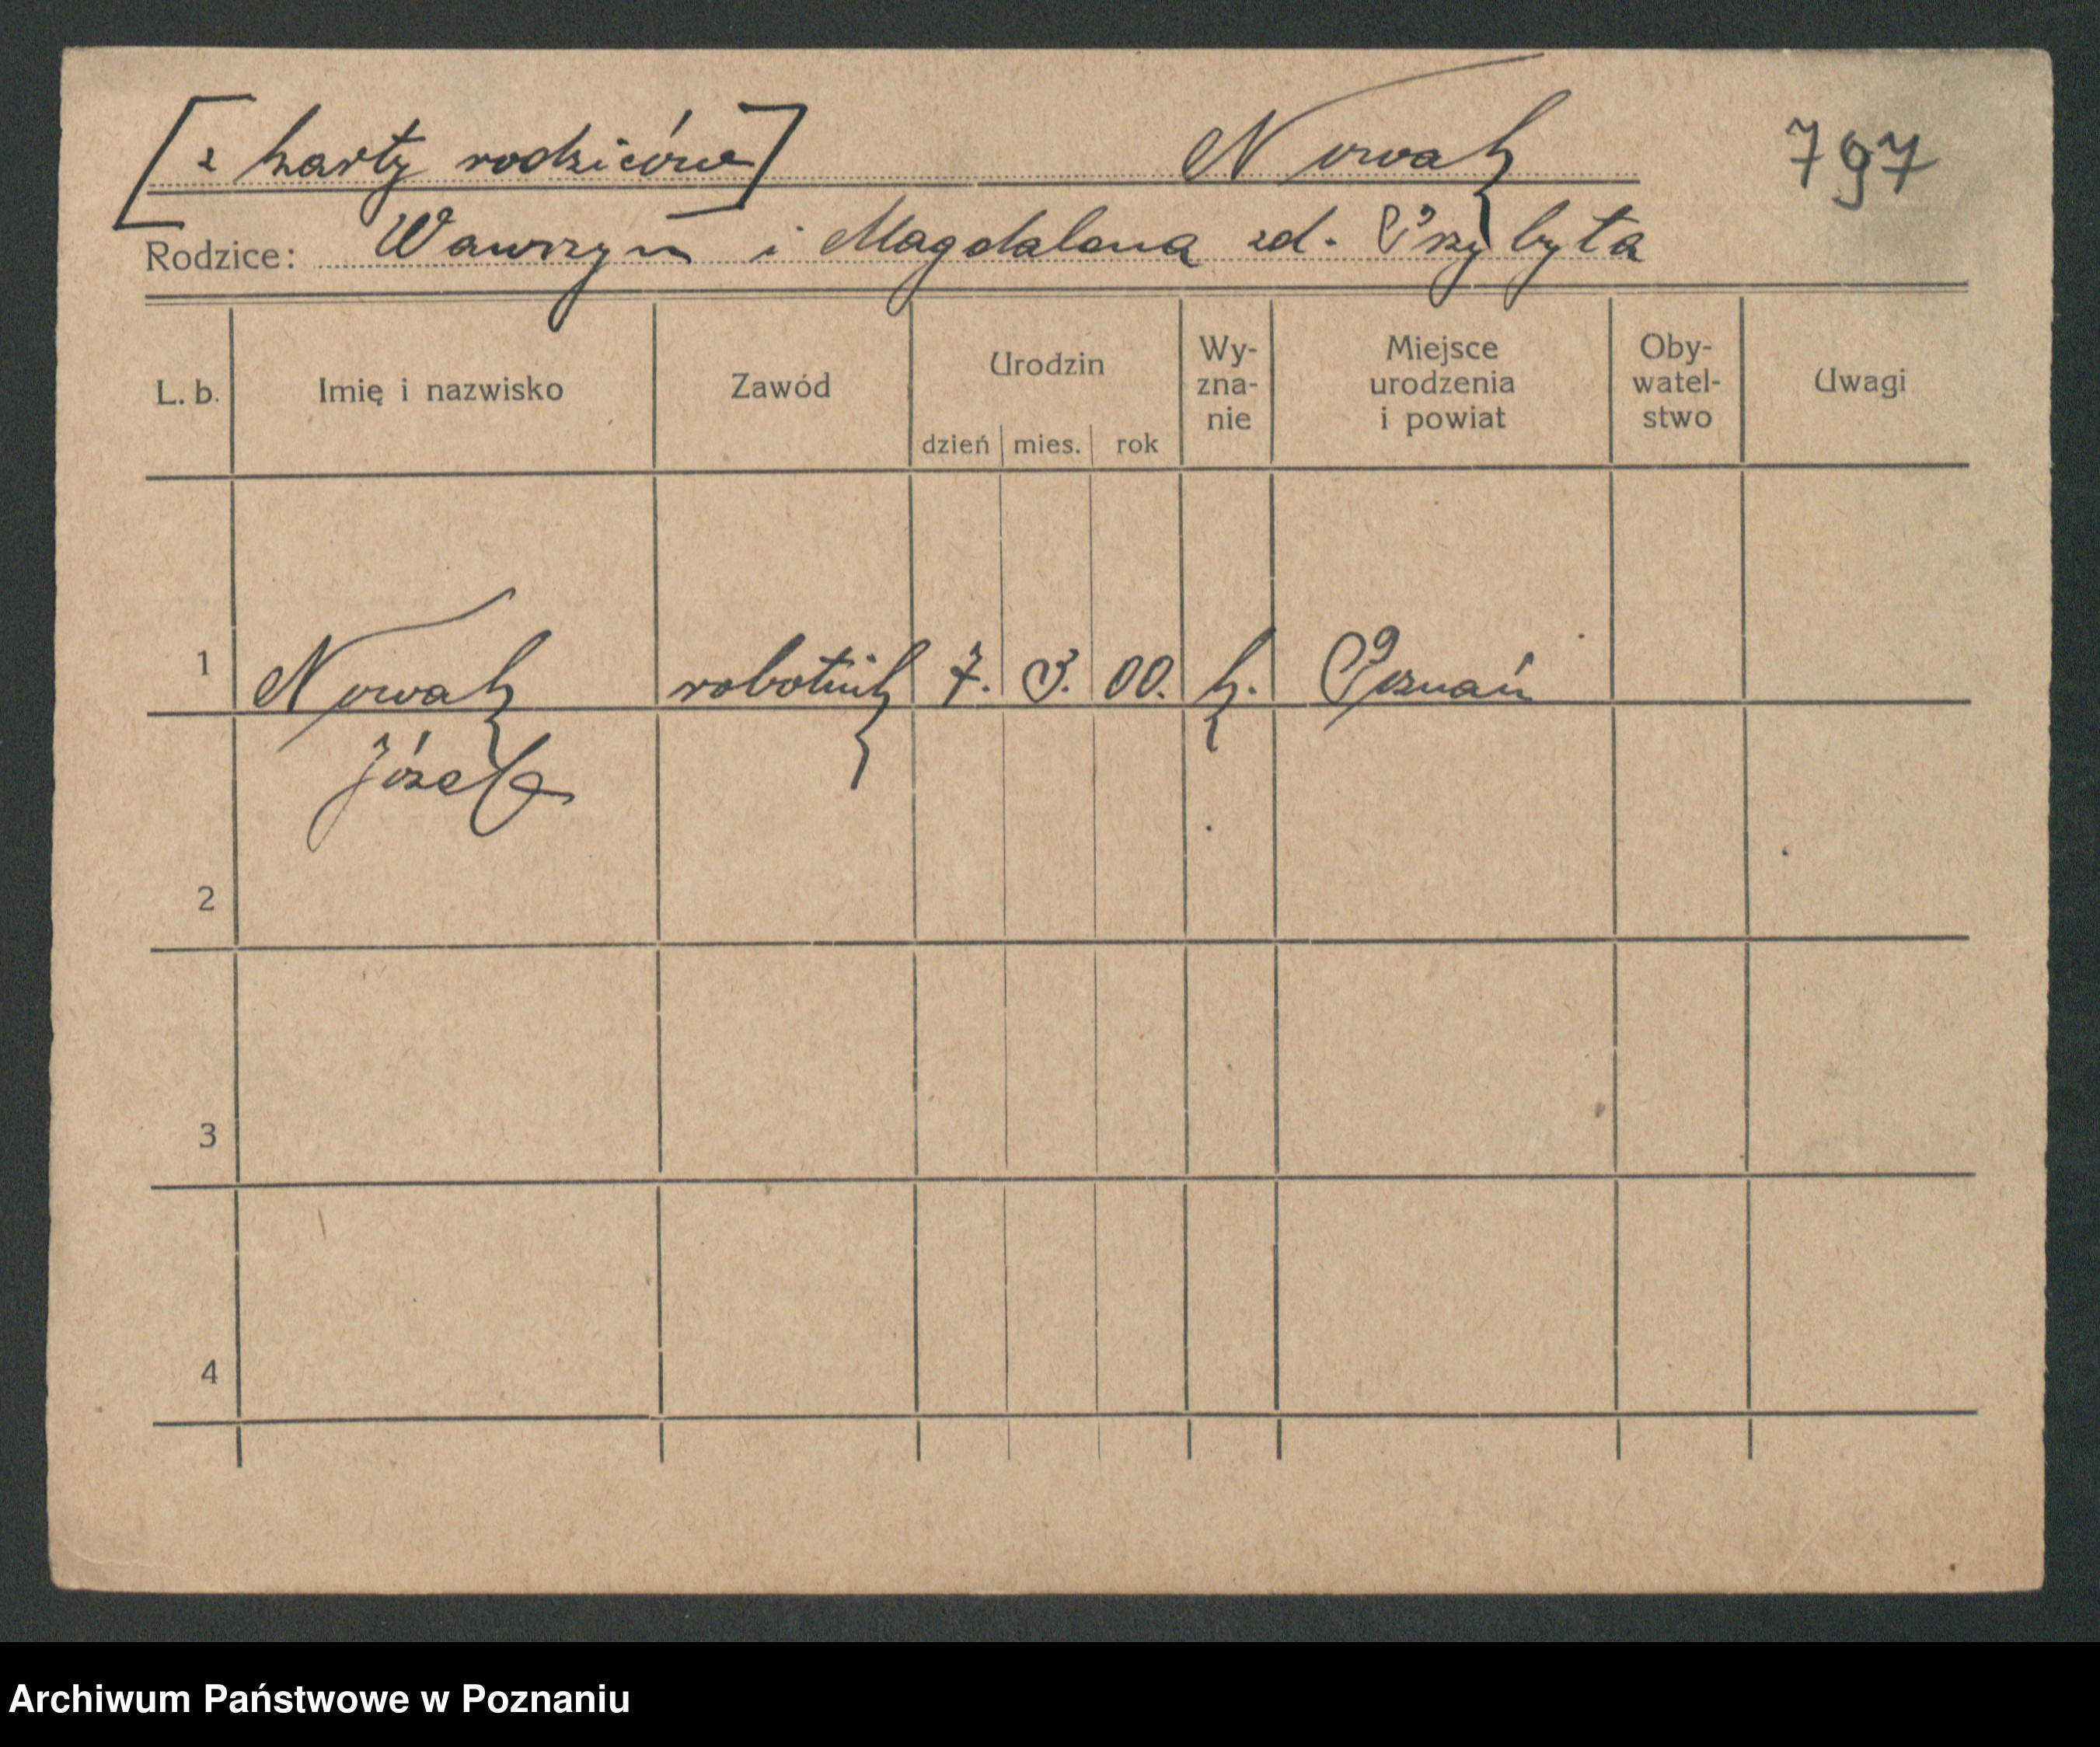 [z karty rodziców] Nowak 797
Rodzice: Wawrzyn i Magdalena zd. Przybyła
L. b. Imię i nazwisko Zawód Urodzin dzień mies. rok Wy-zna-nie Miejsce urodzenia i powiat Oby-watel-stwo Uwagi
1 Nowak robotnik 7. 3. 00. k. Poznań
Józef
2
3
4
Archiwum Państwowe w Poznaniu